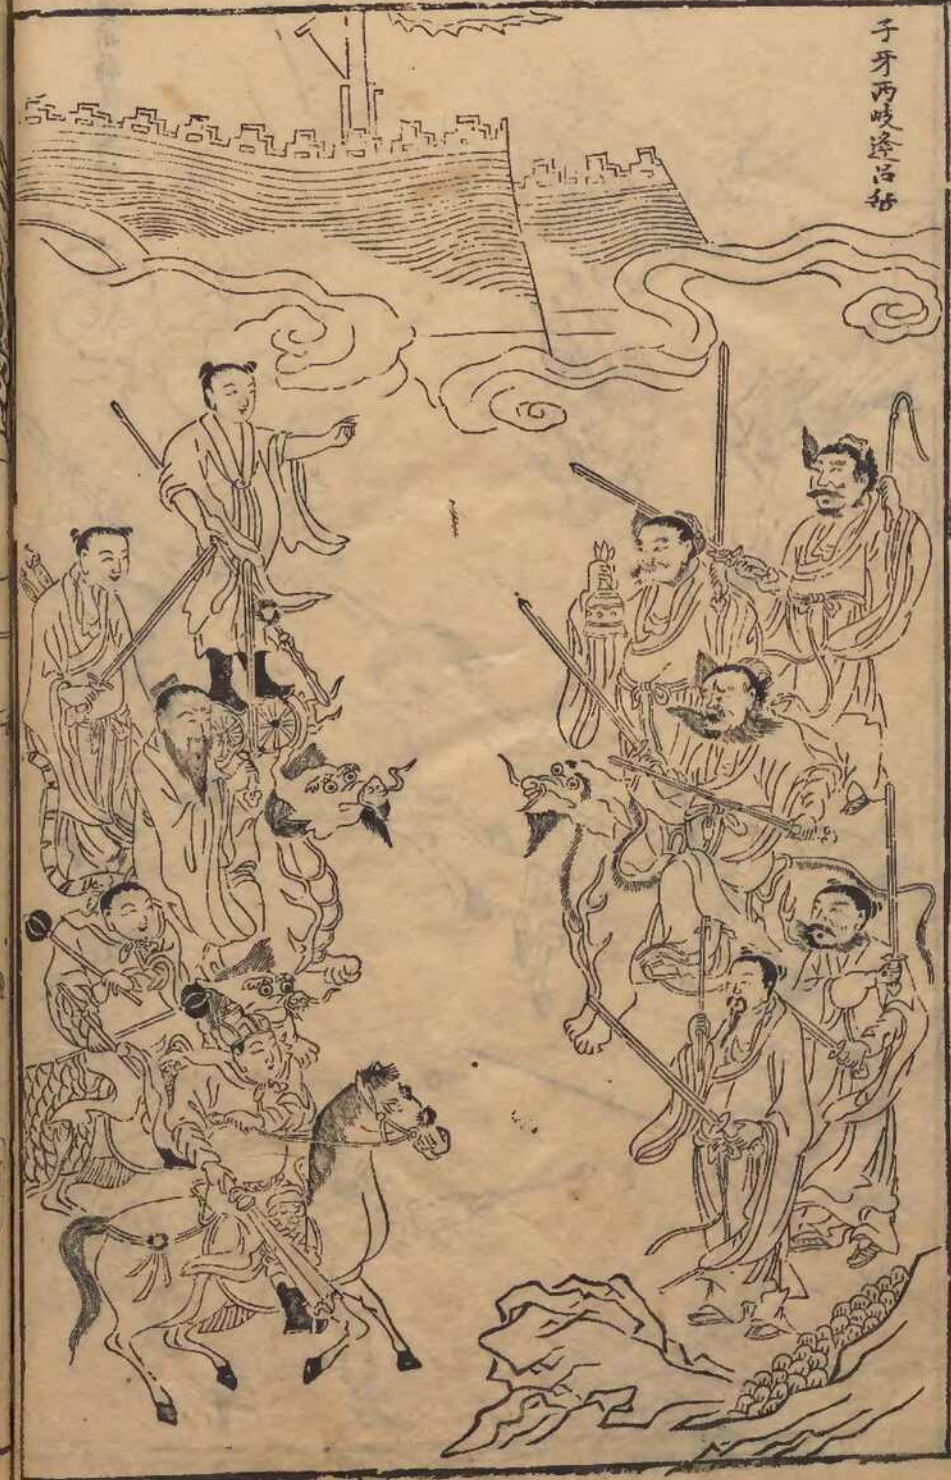 子牙西岐逢吕岳